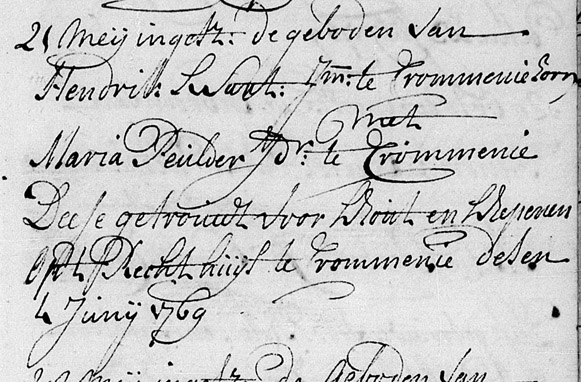 21 Meij ingetz: de geboden van
Hendrik Swart: Jm: te Crommenie horn
Met
Maria Peulder Jdr: te Crommenie
Deese getrouwt voor Schout en Schepenen
opt Rechthuijs te Crommenie desen
4 Junij 1769
Meij ingetz: de geboden van